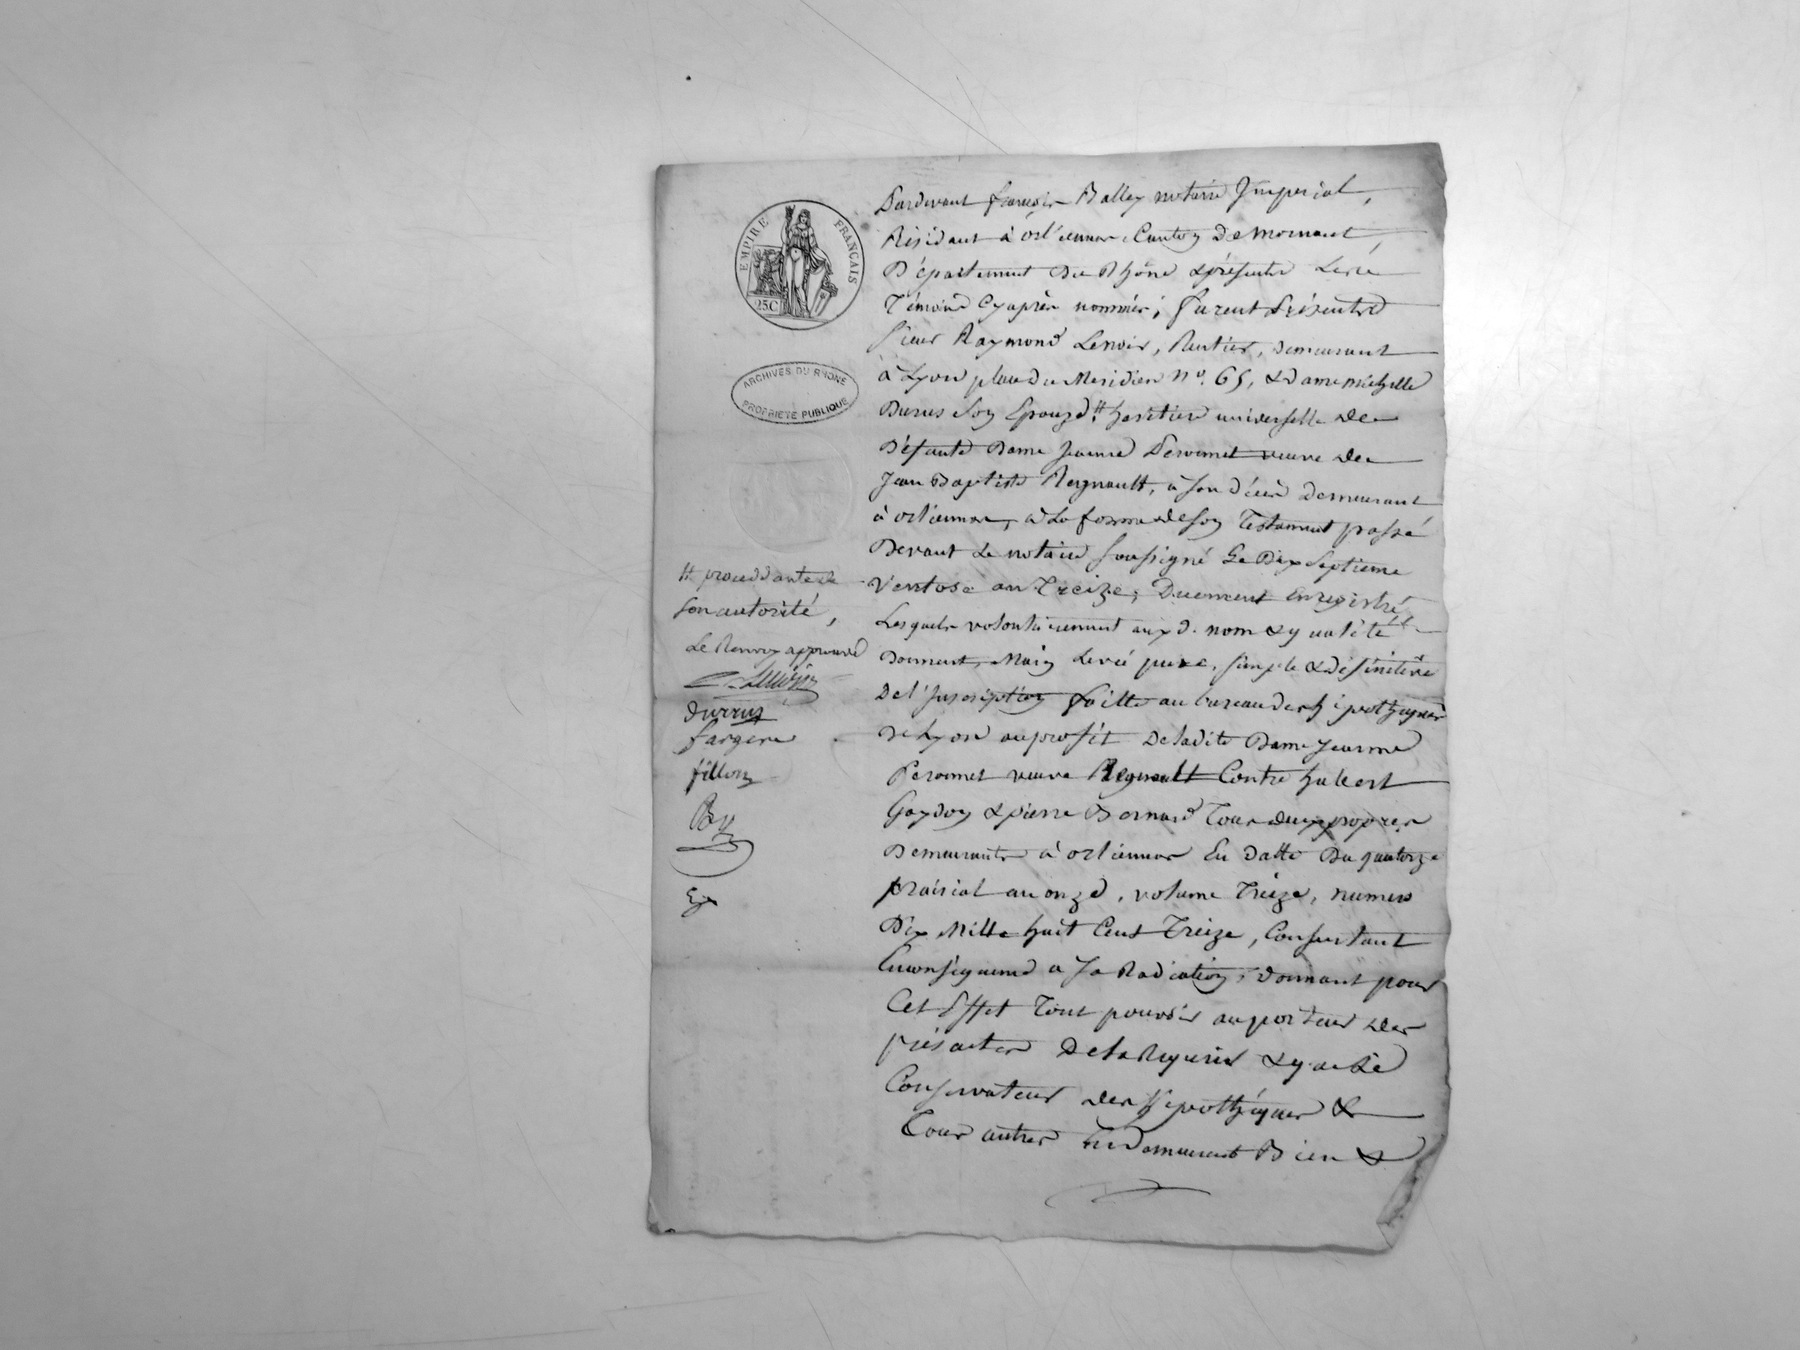 EMPIRE FRANÇAIS
25C
ARCHIVES DU RHONE
PROPRIETE PUBLIQUE
Pardevant françois Balley notaire Imperial,
Résidant à orliennas, Canton De Mornant,
Département Du Rhône & présents Les
Témoins Cyaprès nommés; furent Présents
sieur Raymond Lenoir, Rentier, demeurant
à Lyon place du Meridien n°. 65, & dame michelle
Durus son Epouse # heritiere universelle de
Défunte Dame Jeanne Peronnet veuve de
Jean Baptiste Regnault, à son décès demeurant
à orliennas, à La forme de son Testament passé
Devant Le notaire soussigné Le Dix septieme
Ventose an Treize, Duement Enregistré
Lesquels volontairement auxd. nom & qualité
Donnent Main Levée pure, simple & définitive
De l'Inscription faitte au bureau des hipothèques
De Lyon au profit De ladite Dame Jeanne
Peronnet veuve Regnault Contre hubert
Gaydon & pierre Bernard Tous deux
Demeurants à orliennas En datte Du quatorze
prairial an onze, volume Treize, numero
Dix Mille huit Cent Treize, Consentant
En conséquence a sa Radiation, donnant pour
Cet Effet Tout pouvoir au porteur des
présentes De la Requerir & que Le
Conservateur des hipothèques &
Tous autres En Demeurent Bien &
# procédante de
son autorité,
Le Renvoy approuvé
Lenoir
durrus
fargere
fillon
By